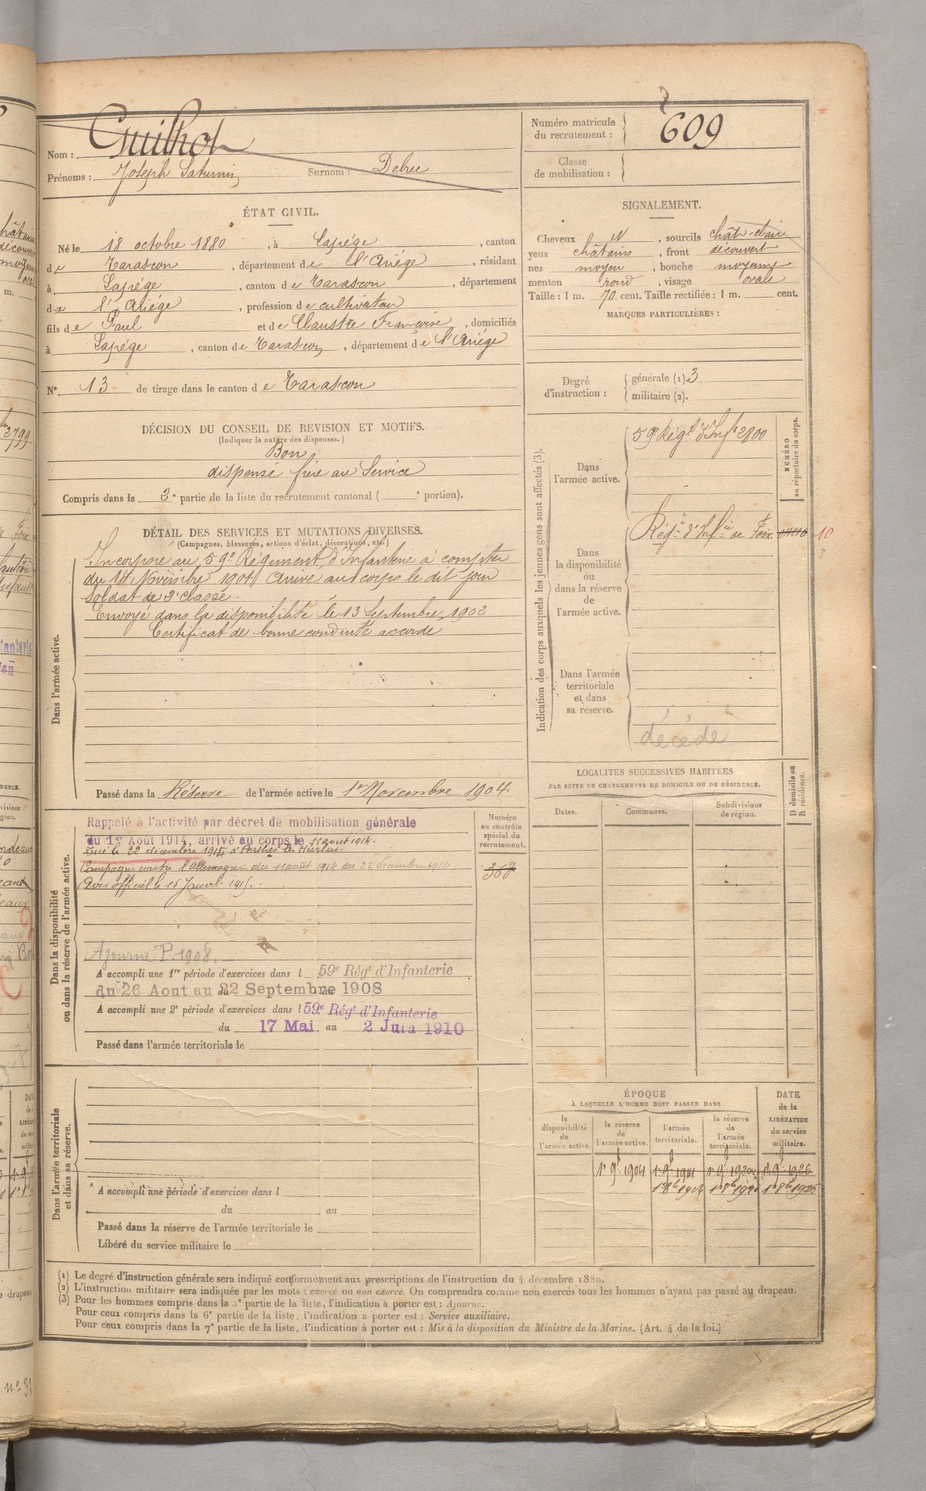 Nom : Guilhot
Prénoms : Joseph Saturnin Surnom : Delrec
ÉTAT CIVIL.
Né le 18 octobre 1880, à Lapège, canton
de Tarascon, département de l'Ariége, résidant
à Lapége, canton de Tarascon, département
de l'Ariége, profession de cultivateur
fils de Paul et de Claustre Françoise, domiciliés
à Lapége, canton de Tarascon, département de l'Ariége
N° 13 de tirage dans le canton de Tarascon
DÉCISION DU CONSEIL DE REVISION ET MOTIFS.
(Indiquer la nature des dispenses.)
Bon
dispensé frère au Service
Compris dans la 3e partie de la liste du recrutement cantonal ( e portion).
DÉTAIL DES SERVICES ET MUTATIONS DIVERSES.
(Campagnes, blessures, actions d'éclat, décorations, etc.)
Dans l'armée active.
Incorporé au 59e Régiment d'Infanterie à compter
du 14 Novembre 1901 Arrivé au corps le dit jour
Soldat de 2e classe.
Envoyé dans la disponibilité le 13 Septembre 1902
Certificat de bonne conduite accordé
Passé dans la Réserve de l'armée active le 1er Novembre 1904
Dans la disponibilité
ou dans la réserve de l'armée active.
Rappelé à l'activité par décret de mobilisation générale
du 1er Août 1914, arrivé au corps le 11 août 1914.
Tué le 22 décembre 1914 à Perthes les Hurlus
Campagne contre l'Allemagne du 11 août 1914 au 22 décembre 1914
Avis officiel le 15 Janvier 1915.
Numéro
au contrôle
spécial du
recrutement.
368
Ajourné P. 1908.
A accompli une 1re période d'exercices dans l 59e Régt d'Infanterie
du 26 Aout au 22 Septembre 1908
A accompli une 2e période d'exercices dans l 59e Régt d'Infanterie
du 17 Mai au 2 Juin 1910
Passé dans l'armée territoriale le
Dans l'armée territoriale
et dans sa réserve.
A accompli une période d'exercices dans l
du au
Passé dans la réserve de l'armée territoriale le
Libéré du service militaire le
Numéro matricule
du recrutement : 609
Classe
de mobilisation :
SIGNALEMENT.
Cheveux N, sourcils chât-clair
yeux châtains, front découvert
nez moyen, bouche moyenne
menton rond, visage ovale
Taille : 1 m. 70 cent. Taille rectifiée : 1 m. cent.
MARQUES PARTICULIÈRES :
Degré
d'instruction :
générale (1) 3
militaire (2).
Indication des corps auxquels les jeunes gens sont affectés (3).
Dans
l'armée active.
59 Régt d'Inf. 2800
NUMÉRO
au répertoire du corps.
Dans
la disponibilité
ou
dans la réserve
de
l'armée active.
Régt d'Infie de Foix
10
Dans l'armée
territoriale
et dans
sa réserve.
décédé
LOCALITÉS SUCCESSIVES HABITÉES
PAR SUITE DE CHANGEMENTS DE DOMICILE OU DE RÉSIDENCE.
Dates.
Communes.
Subdivisions
de région.
D domicile ou
R résidence.
ÉPOQUE
À LAQUELLE L'HOMME DOIT PASSER DANS
la
disponibilité
de
l'armée active.
la réserve
de
l'armée active.
l'armée
territoriale.
la réserve
de
l'armée
territoriale.
DATE
de la
LIBÉRATION
du service
militaire.
1er 9bre 1904 1er 9bre 1911 1er 9bre 1920 1er 9bre 1926
(1) Le degré d'instruction générale sera indiqué conformément aux prescriptions de l'instruction du 4 décembre 1889.
(2) L'instruction militaire sera indiquée par les mots : exercé ou non exercé. On comprendra comme non exercés tous les hommes n'ayant pas passé au drapeau.
(3) Pour les hommes compris dans la 5e partie de la liste, l'indication à porter est : Ajourné.
Pour ceux compris dans la 6e partie de la liste, l'indication à porter est : Service auxiliaire.
Pour ceux compris dans la 7e partie de la liste, l'indication à porter est : Mis à la disposition du Ministre de la Marine. (Art. 4 de la loi.)